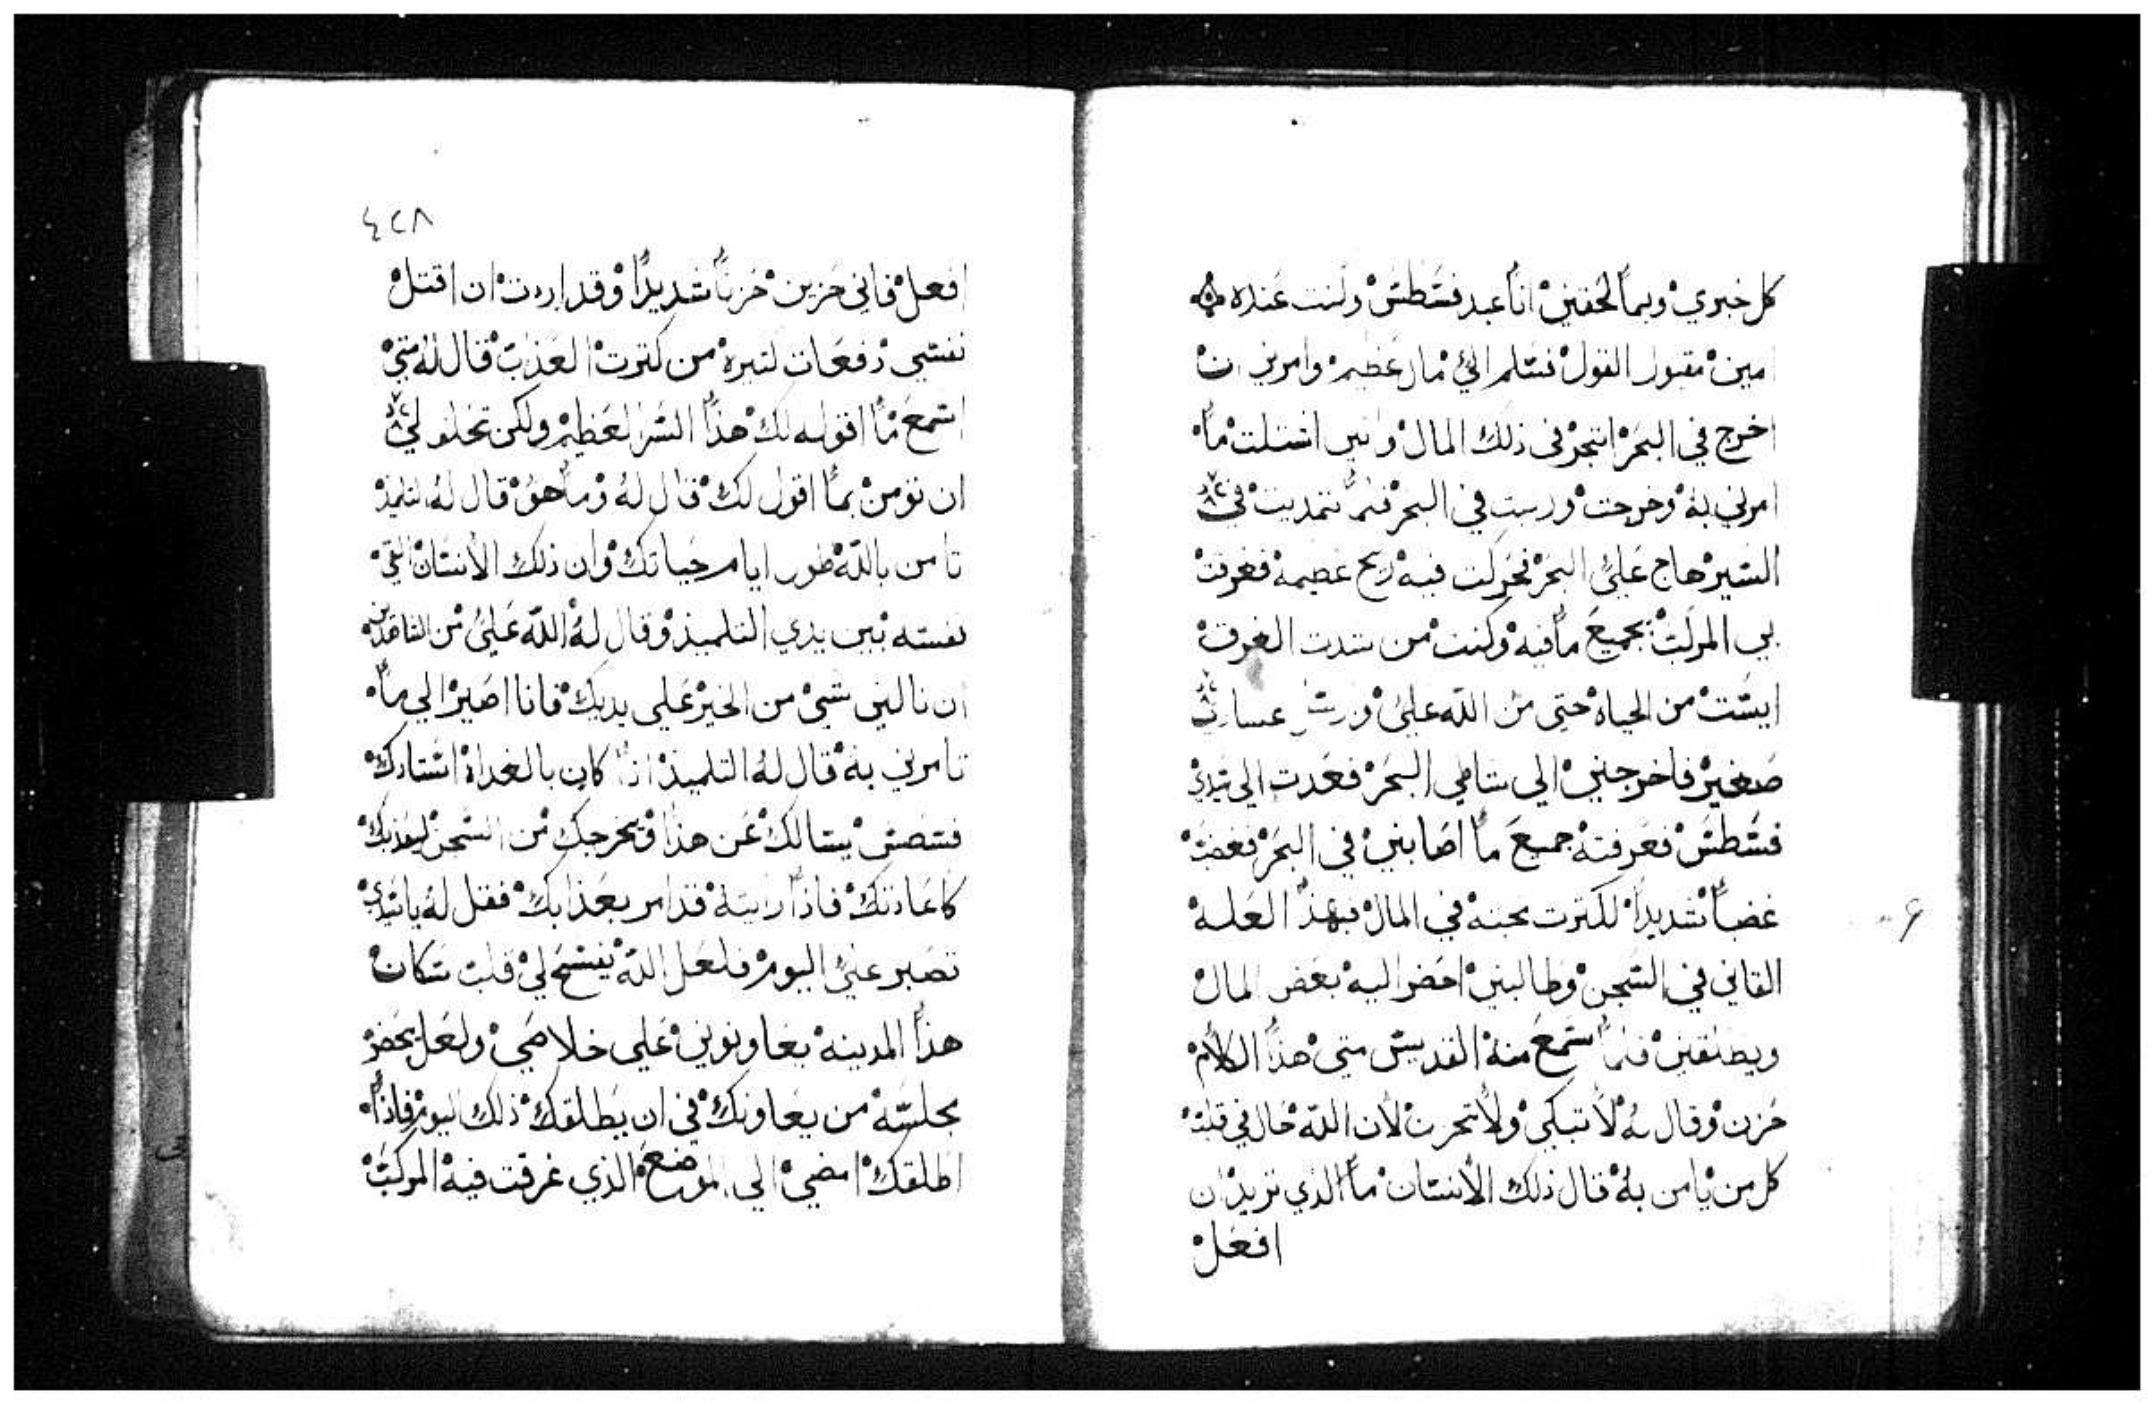 كل خبري وبما لحقني انا عبد فسطس وكنت عنده
امين مقبول القول فسلم الي مال عظيم وامرني ان
اخرج في البحر اتجر في ذلك المال وانني امتثلت ما
امرني به وخرجت وركبت في البحر فلما تماديت في
السير هاج علي البحر تحركت فيه ريح عضيمه فغرقت
بي المركب بجميع ما فيه وكنت من شدت الغرق
ايست من الحياه حتى من الله علي
صغير فاخرجني الي شاطي البحر فعدت الي سيدي
فسطس فعرفته جميع ما اصابني في البحر فغضب
غضباً شديداً لكثرت محبته في المال فبهذا العله
القاني في السجن وطالبني احضر اليه بعض المال
ويطلقني فلما سمع منه القديس متي هذا الكلام
حزن وقال له لا تبكي ولا تحزن لان الله حال في قلب
كل من يامن به قال ذلك الانسان ما الذي تريد ان
افعل
٤٢٨
افعل فاني حزين حزناً شديداً وقد اردت ان اقتل
نفسي دفعات كتيره من كترت العذب قال له متي
اسمع ما اقوله لك هذا السر العظيم ولكن تحلف لي
ان تؤمن بما اقول لك قال له وما هو قال له التلميذ
تامن بالله طول ايام حياتك وان ذلك الانسان القي
نفسه بين يدي التلميذ وقال له الله علي من الشاهدين
ان نالني شي من الخير علي يديك فانا اصير الي ما
تامرني به قال له التلميذ اذا كان بالغداه استادك
فسطس يسالك عن هذا ويخرجك من السجن ليعذبك
كاعادتك فاذا رايته قد امر بعذابك فقل له يا سيدي
تصبر علي اليوم فلعل الله يفسح لي قلب سكان
هذا المدينه يعاونوني علي خلاصي ولعل يحضر
مجلسه من يعاونك في ان يطلقك ذلك اليوم فاذا
اطلقك امضي الي الموضع الذي غرقت فيه المركب